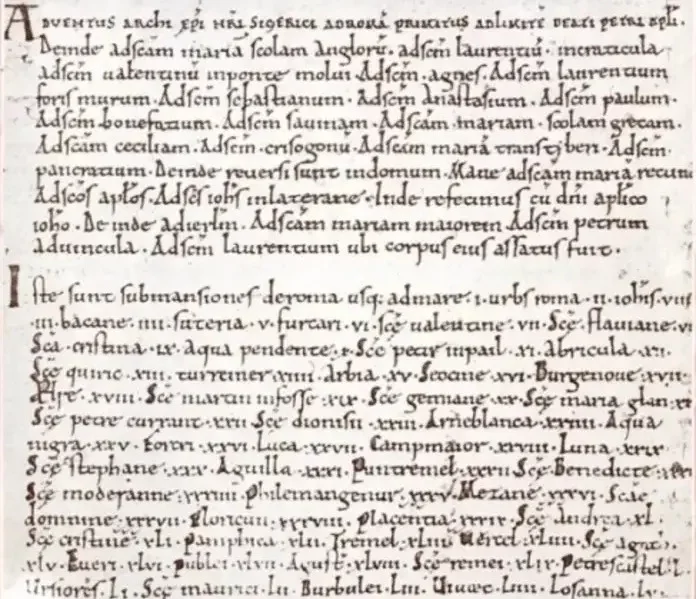 ADVENTUS ARCHI EPI NRI SIGERICI ADROMA PRIMITUS ADLIMITE BEATI PETRI APLI.
Deinde adscam mariā scolam angloru. adscm laurentiū. incraticula
adscm ualentinū inponte molui. Adscm. agnes. Adscm laurentium
foris murum. Adscm sebastianum. Adscm anastasium. Adscm paulum.
Adscm bonefatium. Adscm sauinam. Adscam mariam. scolam grecam.
Adscam ceciliam. Adscm. crisogonū. Adscam mariā transtyberi. Adscm.
pancratium. Deinde reuersi sunt indomum. Mane adscam mariā
Adscos aplos. Adscs iohs inlaterane. Inde refecimus cū dni aplico
ioho. Deinde adierlm. Adscam mariam maiorem Adscm petrum
aduincula. Adscm laurentium ubi corpus eius assatus fuit.
Iste sunt submansiones deroma usq; admare. i. urbs roma. ii. iohis. viiii
.iii. bacane. iiii. suteria. v. furcari. vi. sce ualentine. vii. sce flauiane. vi
Sca cristina. ix. Aqua pendente. x. Sce petir inpail. xi. Abricula. xii.
Sce quiric. xiii. turreiner. xiiii. Arbia. xv. Seocine. xvi. Burgenoue. xvii.
xviii. Sce martin infosse. xix. Sce gemiane. xx. Sce maria glan. xi
Sce petre currant. xxii. Sce dionisii. xxiii. Arneblanca. xxiiii. Aqua
nigra. xxv. Forcri. xxvi. Luca. xxvii. Campmaior. xxviii. Luna. xxix.
Sce stephane. xxx. Aguilla. xxxi. Puntremel. xxxii. Sce Benedicte.
Sce moderanne. xxxiiii. Philemangenur. xxxv. Metane. xxxvi. Scae
domnine. xxxvii. Floricun. xxxviii. placentia. xxxix. Sce Andrea. xl.
Sce cristine. xli. Pamphica. xlii. Tremel. xliii. Uercel. xliiii. Sce agat.
.xlv. Everi. xlvi. publei. xlvii. Agust. xlviii. Sce remei. xlix. Petrecastel. l.
Ursiores. li. Sce maurici. lii. Burbulei. liii. Uiuaec. liiii. Losanna. lv.